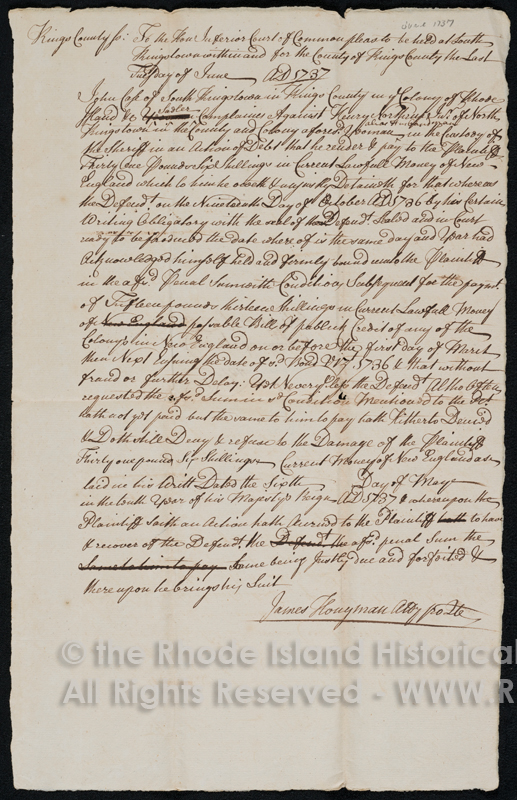 June 1737
Kings County ss: To the Honr. Inferior Court of Common pleas to be held at South
Kingstown within and for the County of Kings County the Last
Tusday of June AD 1737
John Case of South Kingstown in Kings County in ye Colony of Rhode
Island &c Complaines Against Henry Northrup Junr. of North
Kingstown in the County and Colony afores'd Yeoman in the Custody of
the Sheriff in an Action of Debt that he render & pay to the Plaintiff
Thirty one Pounds Six Shillings in Current Lawfull Money of New
England which to him he oweth & unjustly Detaineth for that whereas
the Defendt. on the Nineteenth Day of October AD 1736 by his Certain
Writing Obligatory with the seal of the Defendt. Sealed and in Court
ready to be produced the date whereof is the same day and Year had
Acknowledged himself held and firmly bound unto the Plaintiff
in the affsd. Penal Sum with Condition Subsequent for the paymt.
of Fifteen pounds thirteen Shillings in Current Lawfull Money
of New England passable Bill of publick Credit of any of the
Colonys in New England on or before the first Day of March
then Next Ensuing the date of sd. Bond 1736 & that without
fraud or further Delay: Yet Nevertheless the Defendt. Altho often
requested the affsd. Sum in sd. Condition Mentioned to the
hath not yet paid but the same to him to pay hath hitherto Denied
& Doth still Deny & refuse to the Damage of the Plaintiff
Thirty one pounds Six Shillings Current Money of New England as
laid in his Writt Dated the Sixth Day of Maye
in the tenth Year of his Majestys Reign AD 1737 & whereupon the
Plaintiff saith an Action hath Accrued to the Plaintiff hath to have
& recover of the Defendt. the Defendt. the affsd. penal Sum the
Same to him to pay Same being Justly due and forfeited &
thereupon he brings his Suit
James Honyman Atty pro Qte
© the Rhode Island Historical
All Rights Reserved - WWW.R